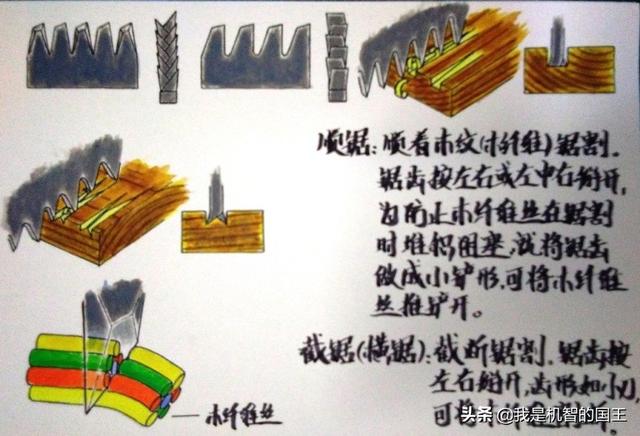 顺锯：顺着木纹(木纤维)锯割.
锯齿按左右或左中右掰开,
为防止木纤维丝在锯割
时堆积阻塞,就将锯齿
做成小铲形,可将木纤维
丝推铲开。
截锯(横锯)：截断锯割. 锯齿按
左右掰开,齿形如小刀,
可将
木纤维丝
头条 @我是机智的国王